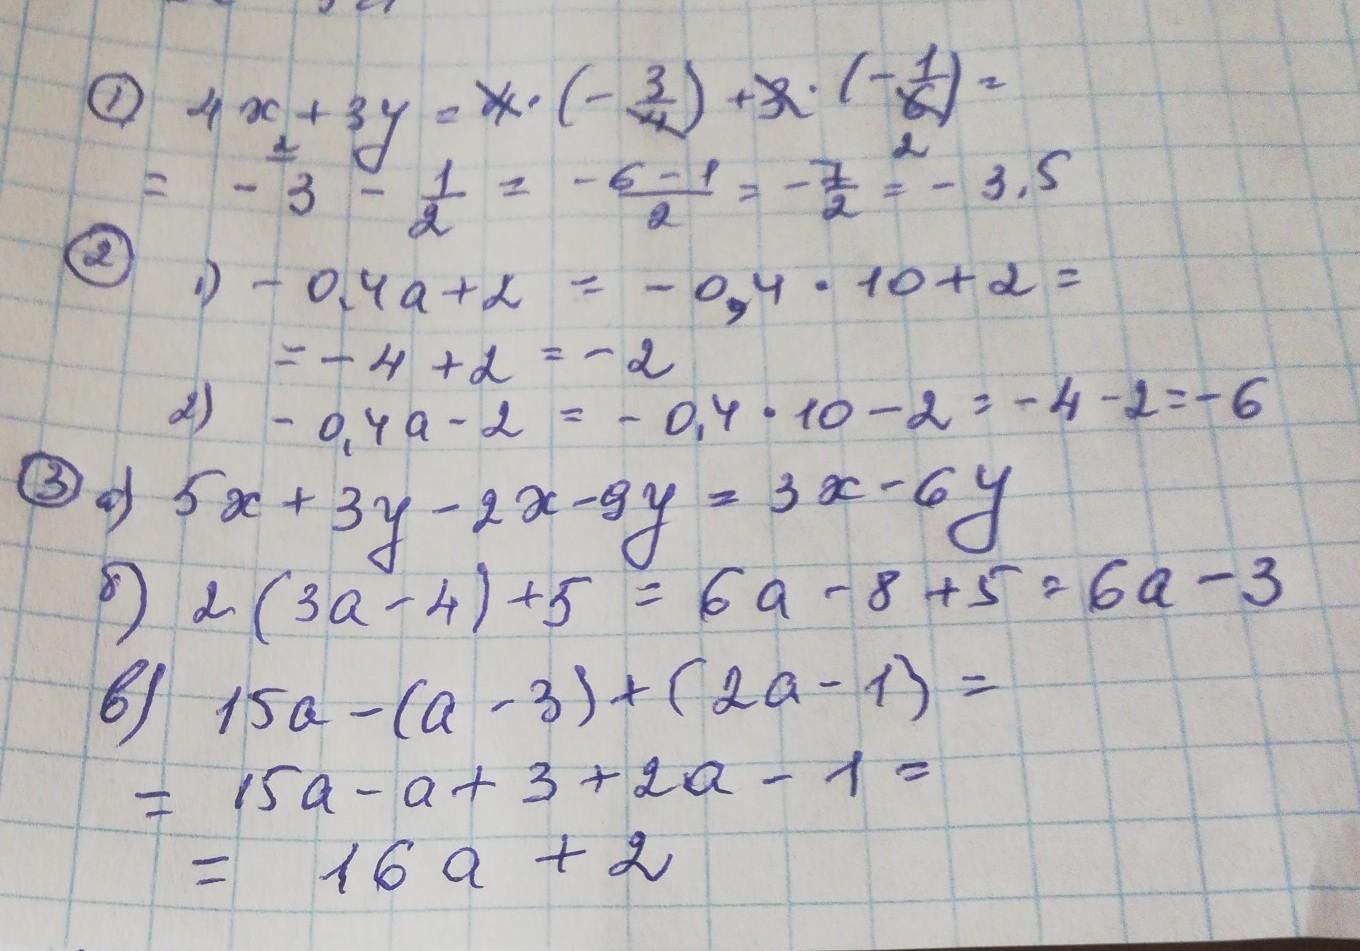 ① 4x + 3y = 4 · (- 3/4) + 3 · (- 1/6) =
= - 3 - 1/2 = (-6 - 1)/2 = - 7/2 = - 3.5
② 1) - 0,4a + 2 = - 0,4 · 10 + 2 =
= - 4 + 2 = - 2
2) - 0,4a - 2 = - 0,4 · 10 - 2 = - 4 - 2 = - 6
③ а) 5x + 3y - 2x - 9y = 3x - 6y
б) 2 (3a - 4) + 5 = 6a - 8 + 5 = 6a - 3
в) 15a - (a - 3) + (2a - 1) =
= 15a - a + 3 + 2a - 1 =
= 16a + 2